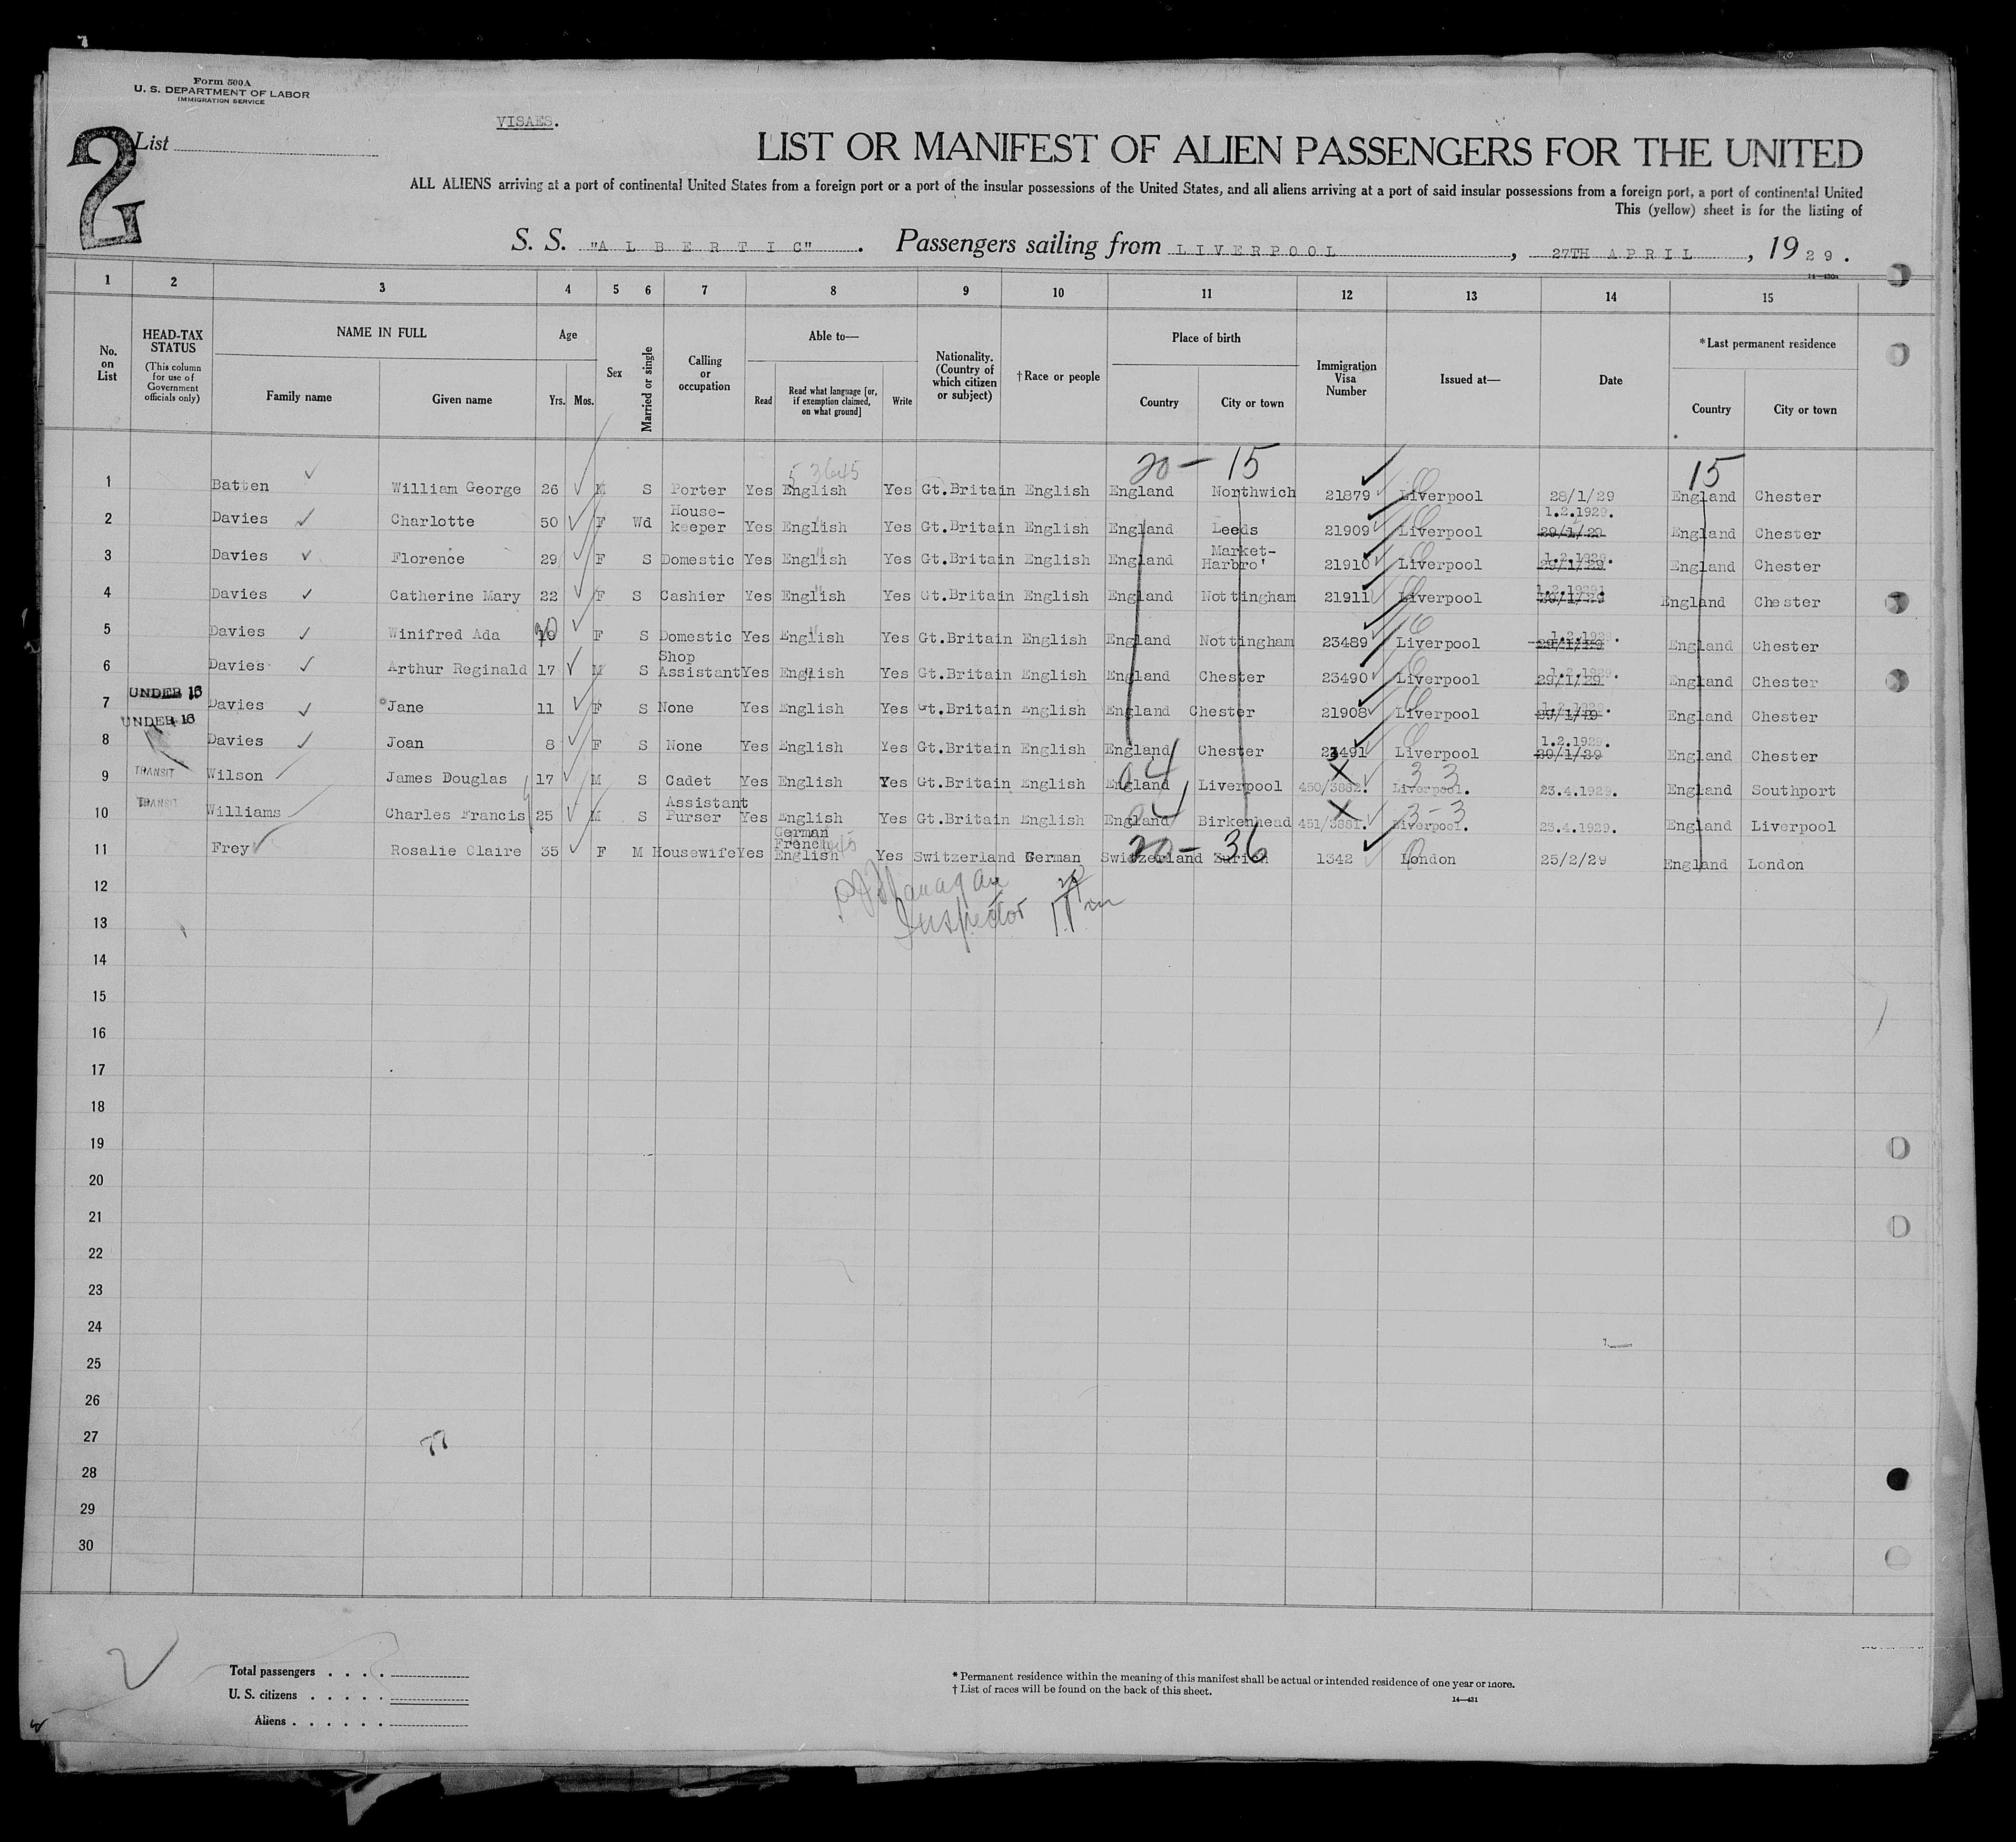 Form 500A
U. S. DEPARTMENT OF LABOR
IMMIGRATION SERVICE
2
List
VISAES.
LIST OR MANIFEST OF ALIEN PASSENGERS FOR THE UNITED
ALL ALIENS arriving at a port of continental United States from a foreign port or a port of the insular possessions of the United States, and all aliens arriving at a port of said insular possessions from a foreign port, a port of continental United
This (yellow) sheet is for the listing of
S. S. "ALBERTIC". Passengers sailing from LIVERPOOL, 27TH APRIL, 1929.
14—430a
1 2 3 4 5 6 7 8 9 10 11 12 13 14 15
No. on List
HEAD-TAX STATUS
(This column for use of Government officials only)
NAME IN FULL
Family name Given name
Age
Yrs. Mos.
Sex
Married or single
Calling or occupation
Able to—
Read Read what language [or, if exemption claimed, on what ground] Write
Nationality. (Country of which citizen or subject)
†Race or people
Place of birth
Country City or town
Immigration Visa Number
Issued at—
Date
*Last permanent residence
Country City or town
5 3645 20 — 15 15
1 Batten William George 26 M S Porter Yes English Yes Gt.Britain English England Northwich 21879 Liverpool 28/1/29 England Chester
2 Davies Charlotte 50 F Wd House-keeper Yes English Yes Gt.Britain English England Leeds 21909 Liverpool 1.2.1929. 29/1/29 England Chester
3 Davies Florence 29 F S Domestic Yes English Yes Gt.Britain English England Market-Harbro' 21910 Liverpool 1.2.1929. 29/1/29 England Chester
4 Davies Catherine Mary 22 F S Cashier Yes English Yes Gt.Britain English England Nottingham 21911 Liverpool 1.2.1929 29/1/29 England Chester
5 Davies Winifred Ada 20 F S Domestic Yes English Yes Gt.Britain English England Nottingham 23489 Liverpool 1.2.1929. 29/1/29 England Chester
6 Davies Arthur Reginald 17 M S Shop Assistant Yes English Yes Gt.Britain English England Chester 23490 Liverpool 1.2.1929. 29/1/29 England Chester
UNDER 16
7 Davies Jane 11 F S None Yes English Yes Gt.Britain English England Chester 21908 Liverpool 1.2.1929 29/1/29 England Chester
UNDER 16
8 Davies Joan 8 F S None Yes English Yes Gt.Britain English England Chester 23491 Liverpool 1.2.1929. 29/1/29 England Chester
9 TRANSIT Wilson James Douglas 17 M S Cadet Yes English Yes Gt.Britain English England 04 Liverpool 450/3882. X Liverpool. 3 3 23.4.1929. England Southport
10 TRANSIT Williams Charles Francis 25 M S Assistant Purser Yes English Yes Gt.Britain English England 04 Birkenhead 451/3881. X Liverpool. 3-3 23.4.1929. England Liverpool
11 Frey Rosalie Claire 35 F M Housewife Yes German French English Yes Switzerland German Switzerland Zurich 20 — 36 1342 London 25/2/29 England London
12
Inspector
13
14
15
16
17
18
19
20
21
22
23
24
25
26
27
28
29
30
Total passengers . . . .
U. S. citizens . . . . .
Aliens . . . . . .
* Permanent residence within the meaning of this manifest shall be actual or intended residence of one year or more.
† List of races will be found on the back of this sheet.
14—431